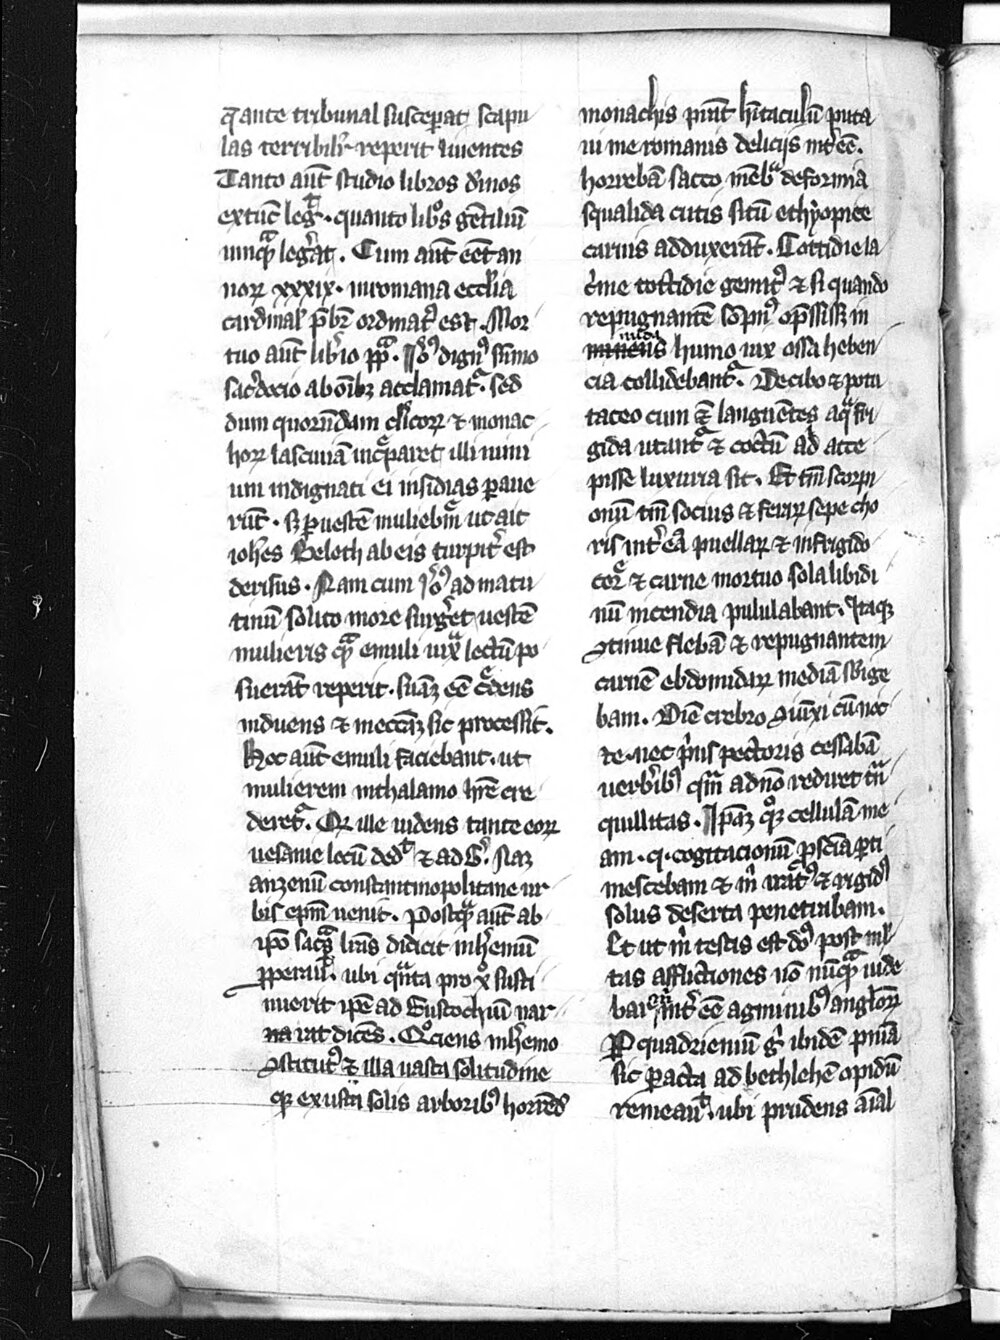 q̄ ante tribunal susceperat scapu
las terribilr̄ reperit liuentes
Tanto aūt studio libros diuos
extūc leḡt . quanto libͦs gētiliū
nūqᷓ leg̾at . Cum aūt eēt an
norꝝ xxxix . in romana eccl̄ia
cardinal̄ p̄br̄ ordinatꝰ est . Mor
tuo aūt lib̾io pp̄ . Ieͦꝰ dignꝰ sūmo
sac̾docio ab oībꝫ acclamatᷓ . sed
dum quorūdam cl̄icorꝝ ⁊ monac
horꝝ lasciuiā incᷓparet illi nimi
um indignati ei insidias paue
rūt . Sꝫ ꝑ uestē muliebrē ut ait
ioh̄es Beloth ab eis turpit̾ est
derisus . Nam cum Ieͦꝰ ad matu
tinū solito more surg̾et uestē
mulieris qᷓ emuli iuxᷓ lectū po
suerāt reperit . suāꝫ eē cͤdens
induens ⁊ in eccāꝫ sic processit .
Hoc aūt emuli faciebant . ut
mulierem in thalamo hr̄e cre
deretᷓ . Qꝫ ille uidens tante eorꝝ
uesanie locū dedͭ ⁊ ad Gͥ. Naꝫ
anzenū constantinopolitane ur
bis ep̄m uenit . Postqᷓ aūt ab
ip̄o sacᷓs lr̄as didicit in h̾emū
ꝓperauͭ . ubi qᷓnta pro xͦ susti
nuerit ip̄e ad Eustochiū nar
na rat dicēs . Qͦciens in h̾emo
ꝯstitutꝰ ⁊ illa uasta solitudine
qꝫ exusta solis arboribꝰ horrēdͫ
monachis p̄stat h̄itaculū puta
ui me romanis delicijs int̾eē .
horrebā sacco mēbᷓ deformia
squalida cutis sitū ethyopice
carnis adduxerāt . Cottidie la
c̾me cottidie gemitꝰ ⁊ si quando
repugnantē sōpnꝰ opp̄ssissꝫ in
nuda humo uix ossa heben
cia collidebantᷓ . De cibo ⁊ potu
taceo cum eᷓ languētes aqᷓ fri
gida utantᷓ ⁊ coctū ad acce
pisse luxuria sit . Et tn̄ scorpi
onū tm̄ socius ⁊ ferarꝝ sepe cho
ris int̾eā puellaꝝ ⁊ in frigido
corꝑe ⁊ carne mortuo sola libidi
nū incendia pululabant . Itaqꝫ
ꝯtinue flebā ⁊ repugnantem
carnē ebdomidarꝝ mediā sbige
bam . Diē crebro ꝯiūxi cū noc
te . nec p̾us pectoris cessabā
uerb̾ibꝰ qm̄ ad nō rediret tn̄
quillitas . Ip̄aꝫ qͦꝫ cellulā me
am . q . cogitacionū ꝯsciā pti
mescebam ⁊ m̄ iratꝰ ⁊ rigidꝰ
solus deserta penetrabam .
Et ut m̄ testis est dꝰs post ml̄
tas afflictiones nō nūqᷓ uide
bar m̄ int̾eē agminibꝰ angl̄orꝝ
P quadrieniū g̊ ibidē pn̄iā
sic pacta ad bethlehē opidū
remeauͭ . ubi prudens aīal